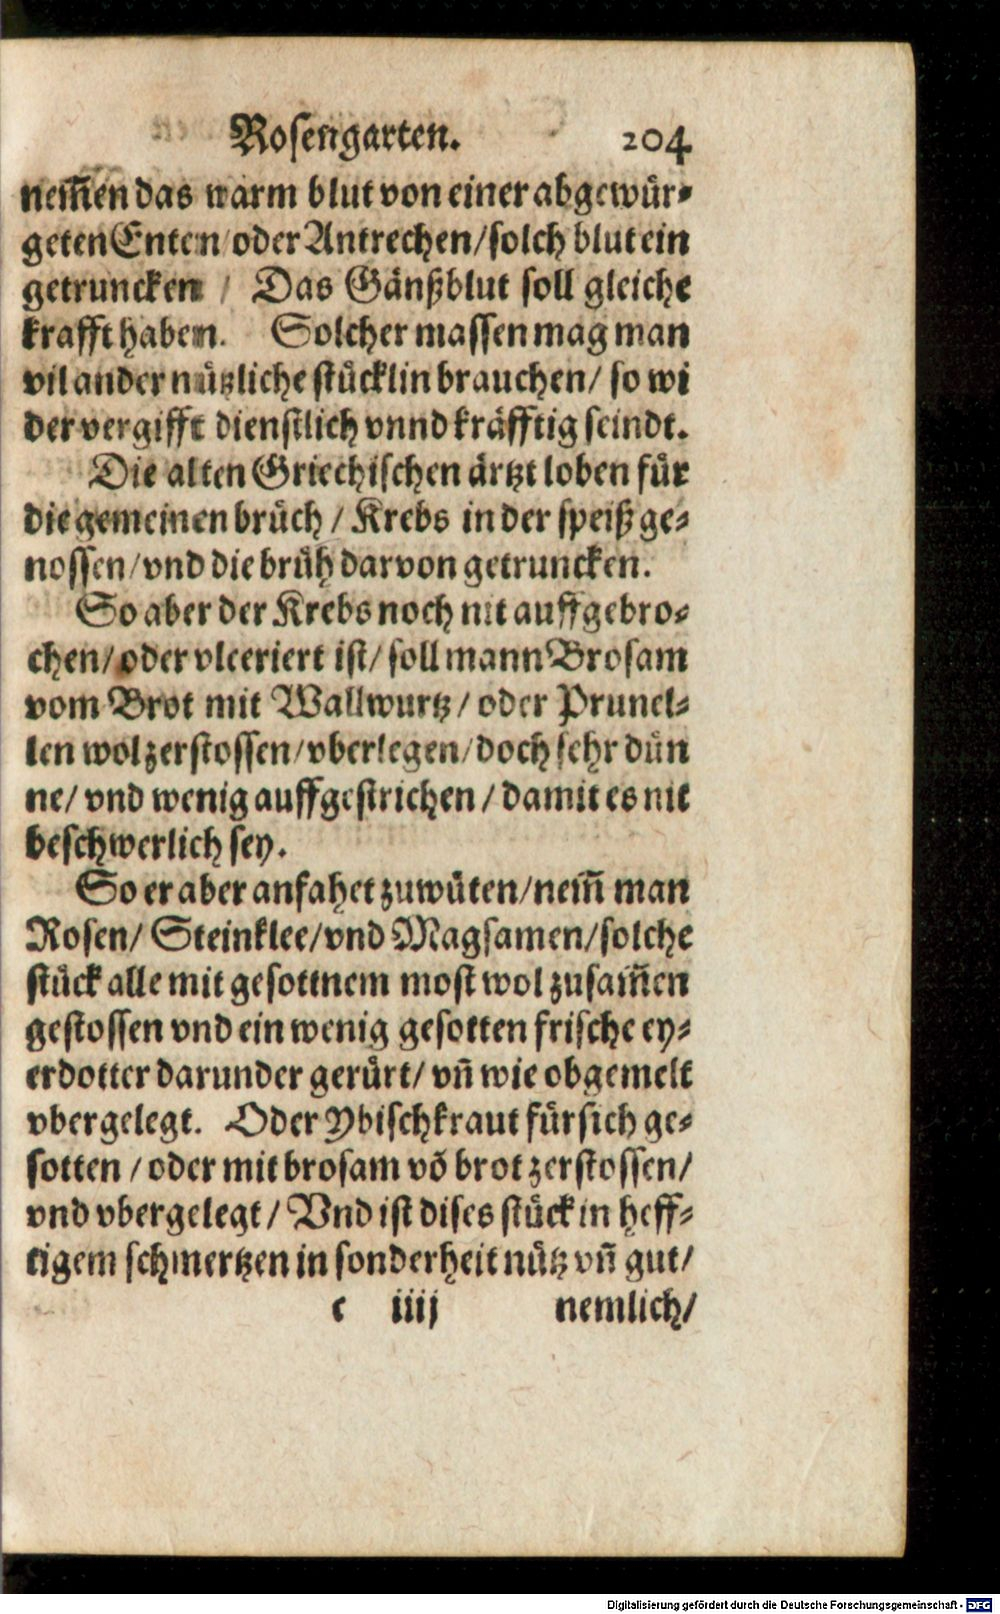 Rosengarten. 204
nem̄en das warm blut von einer abgewür⸗
geten Enten / oder Antrechen / solch blut ein
getruncken / Das Gänßblut soll gleiche
krafft haben. Solcher massen mag man
vil ander nützliche stücklin brauchen / so wi
der vergifft dienstlich vnnd kräfftig seindt.
Die alten Griechischen ärtzt loben für
die gemeinen brüch / Krebs in der speiß ge⸗
nossen / vnd die brüh darvon getruncken.
So aber der Krebs noch nit auffgebro⸗
chen / oder vlceriert ist / soll mann Brosam
vom Brot mit Wallwurtz / oder Prunel⸗
len wol zerstossen / vberlegen / doch sehr dün
ne / vnd wenig auffgestrichen / damit es nit
beschwerlich sey.
So er aber anfahet zuwüten / nem̄ man
Rosen / Steinklee / vnd Magsamen / solche
stück alle mit gesottnem most wol zusam̄en
gestossen vnd ein wenig gesotten frische ey⸗
erdotter darunder gerürt / vn̄ wie obgemelt
vbergelegt. Oder Ybischkraut für sich ge⸗
sotten / oder mit brosam vō brot zerstossen /
vnd vbergelegt / Vnd ist dises stück in heff⸗
tigem schmertzen in sonderheit nütz vn̄ gut /
c iiij nemlich /
Digitalisierung gefördert durch die Deutsche Forschungsgemeinschaft - DFG